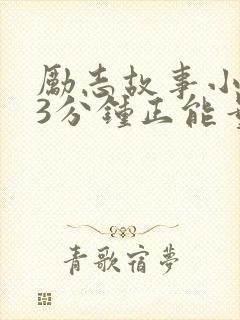 勵志故事小
3分鍾正能
青歌宿夢